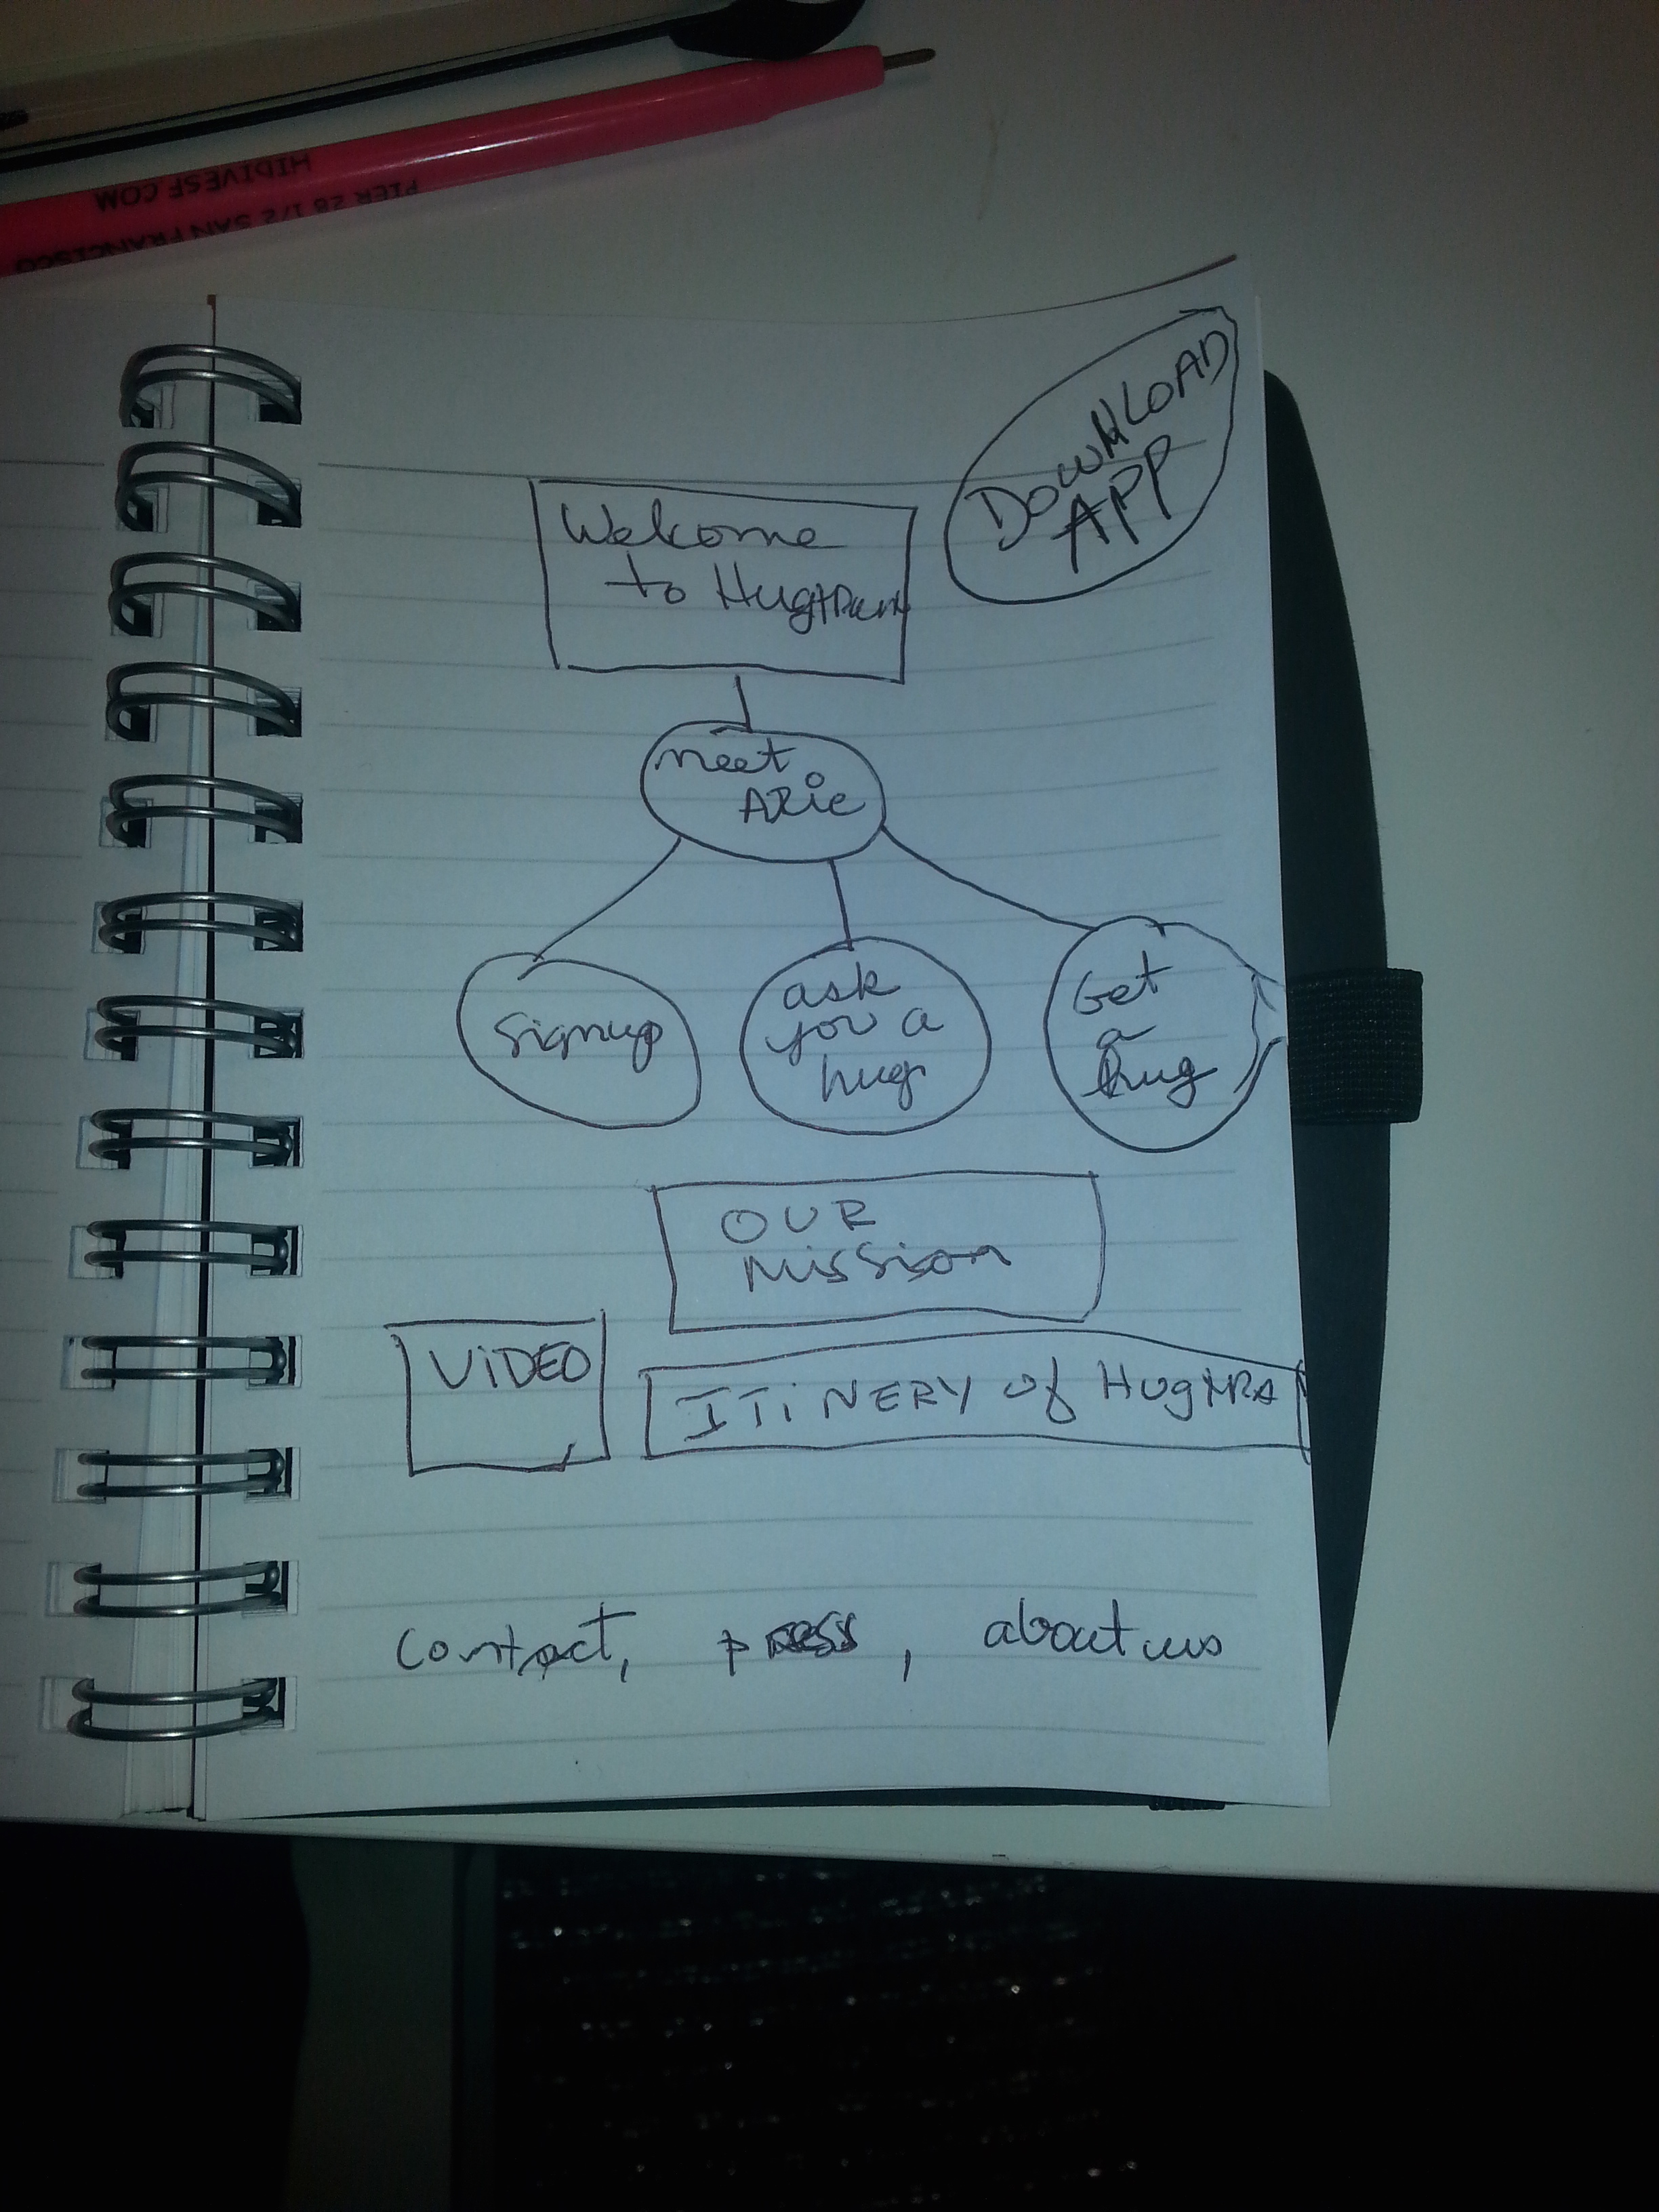 HIDIVESF COM
PIER 28 1/2 SAN FRANCISCO
DOWNLOAD
APP
Welcome
to
meet
ARie
Signup
ask
you a
hug
Get
a
hug
OUR
Mission
ViDEO
ITiNERY of
contact, press, about us